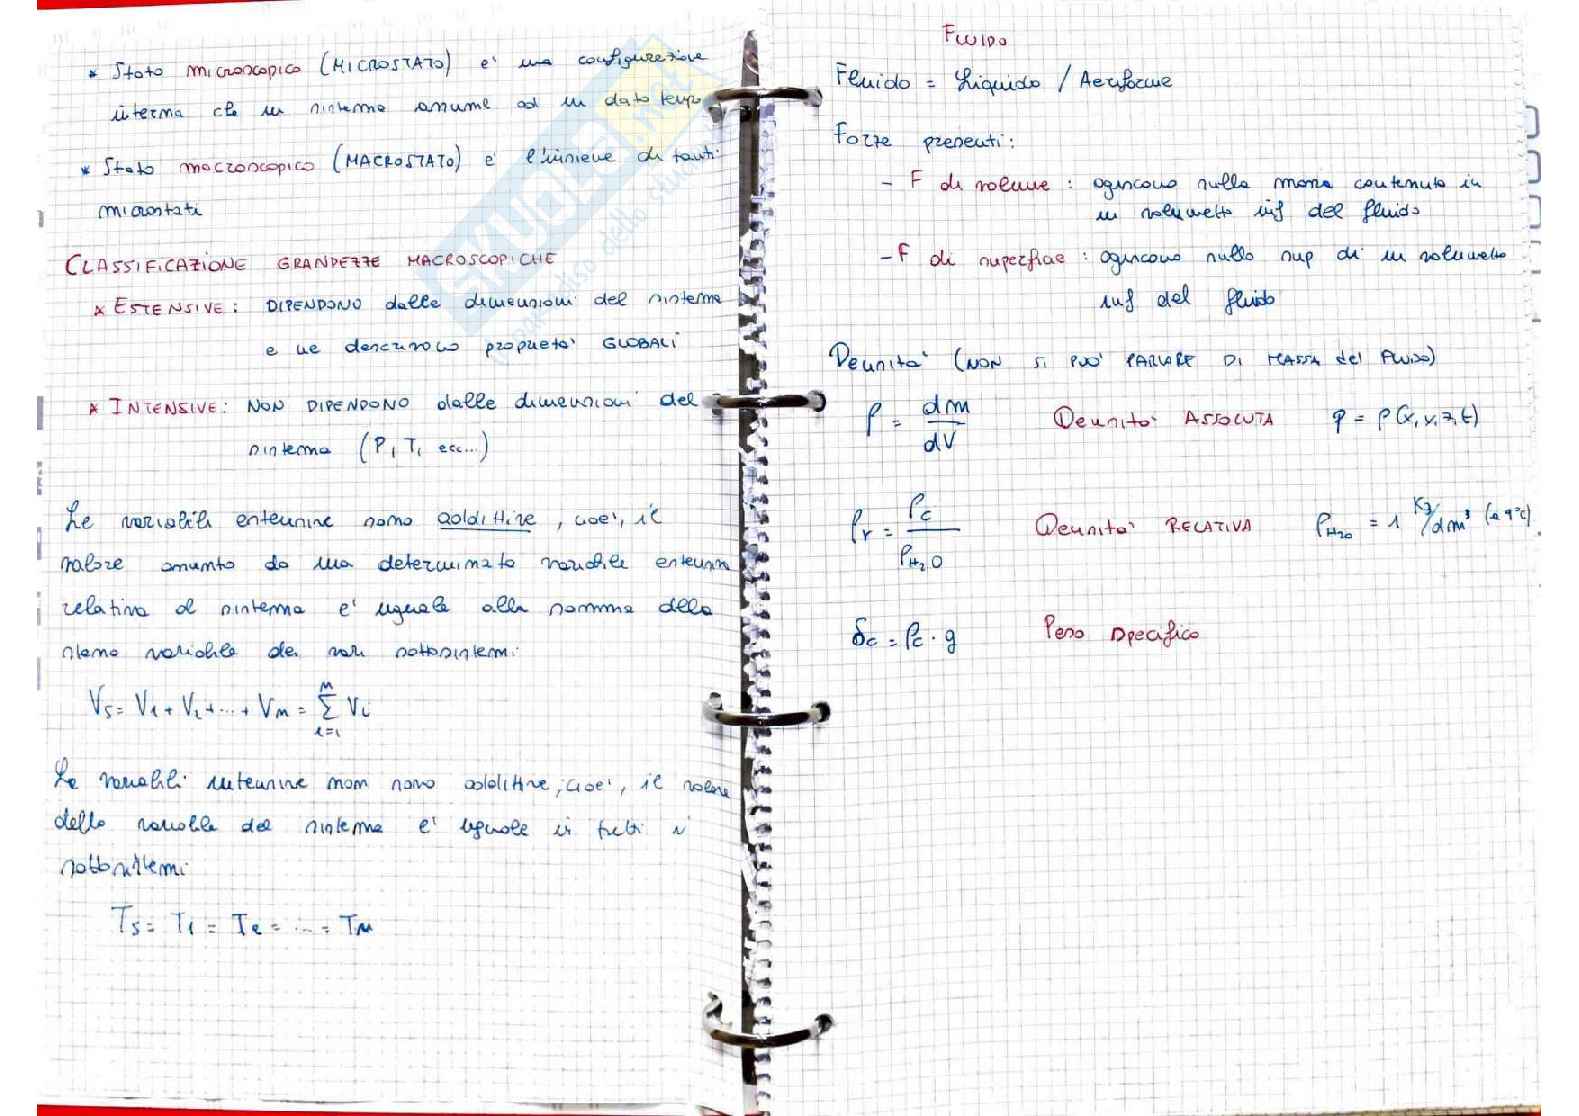 * Stato microscopico (MICROSTATO) e' una configurazione
interna che un sistema assume ad un dato tempo
* Stato macroscopico (MACROSTATO) e' l'insieme di tanti
microstati
CLASSIFICAZIONE GRANDEZZE MACROSCOPICHE
* ESTENSIVE: DIPENDONO dalle dimensioni del sistema
e ne descrivono proprietà GLOBALI
* INTENSIVE: NON DIPENDONO dalle dimensioni del
sistema (P, T, ecc...)
Le variabili estensive sono additive, cioe', il
valore assunto da una determinata variabile estensiva
relativa al sistema e' uguale alla somma della
stessa variabile dei vari sottosistemi:
Vs = V1 + V2 + ... + Vn = Σ Vi
n
i=1
Le variabili intensive non sono additive, cioe', il valore
della variabile del sistema e' uguale in tutti i
sottosistemi
Ts = T1 = T2 = ... = Tn
FLUIDO
Fluido = Liquido / Aeriforme
Forze presenti:
- F di volume: agiscono sulla massa contenuta in
un volumetto inf del fluido
- F di superficie: agiscono sulla sup di un volumetto
inf del fluido
Densita' (NON SI PUO' PARLARE DI MASSA del FLUIDO)
ρ = dm/dV Densita' ASSOLUTA ρ = ρ(x, y, z, t)
ρr = ρc/ρH2O Densita' RELATIVA ρH2O = 1 Kg/dm³ (a 4°C)
δc = ρc · g Peso specifico
SKUOLA.net